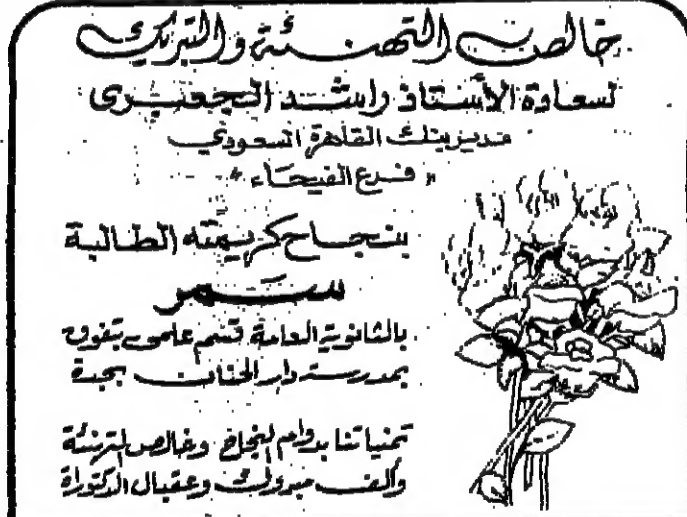 خالص التهنئة والتبريك
لسعادة الأستاذ راشد الجعبرى
مدير بنك القاهرة السعودي
" فرع الفيحاء "
بنجاح كريمته الطالبة
سمر
بالثانوية العامة قسم علمى بتفوق
بمدرسة دار الحنان بجدة
تمنياتنا بدوام النجاح وخالص التهنئة
وألف مبروك وعقبال الدكتوراة